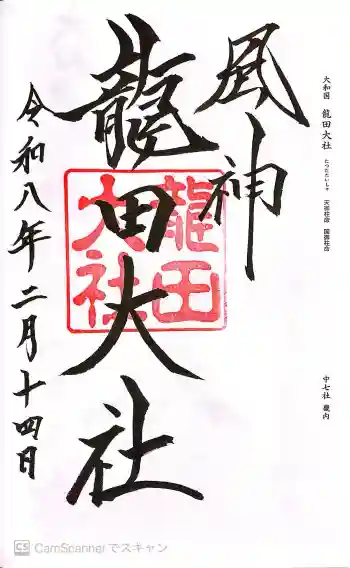 大和国 龍田大社
たつたたいしゃ
天御柱命 国御柱命
中七社 畿内
風神
龍田大社
龍田大社
令和八年二月十四日
CS CamScanner でスキャン